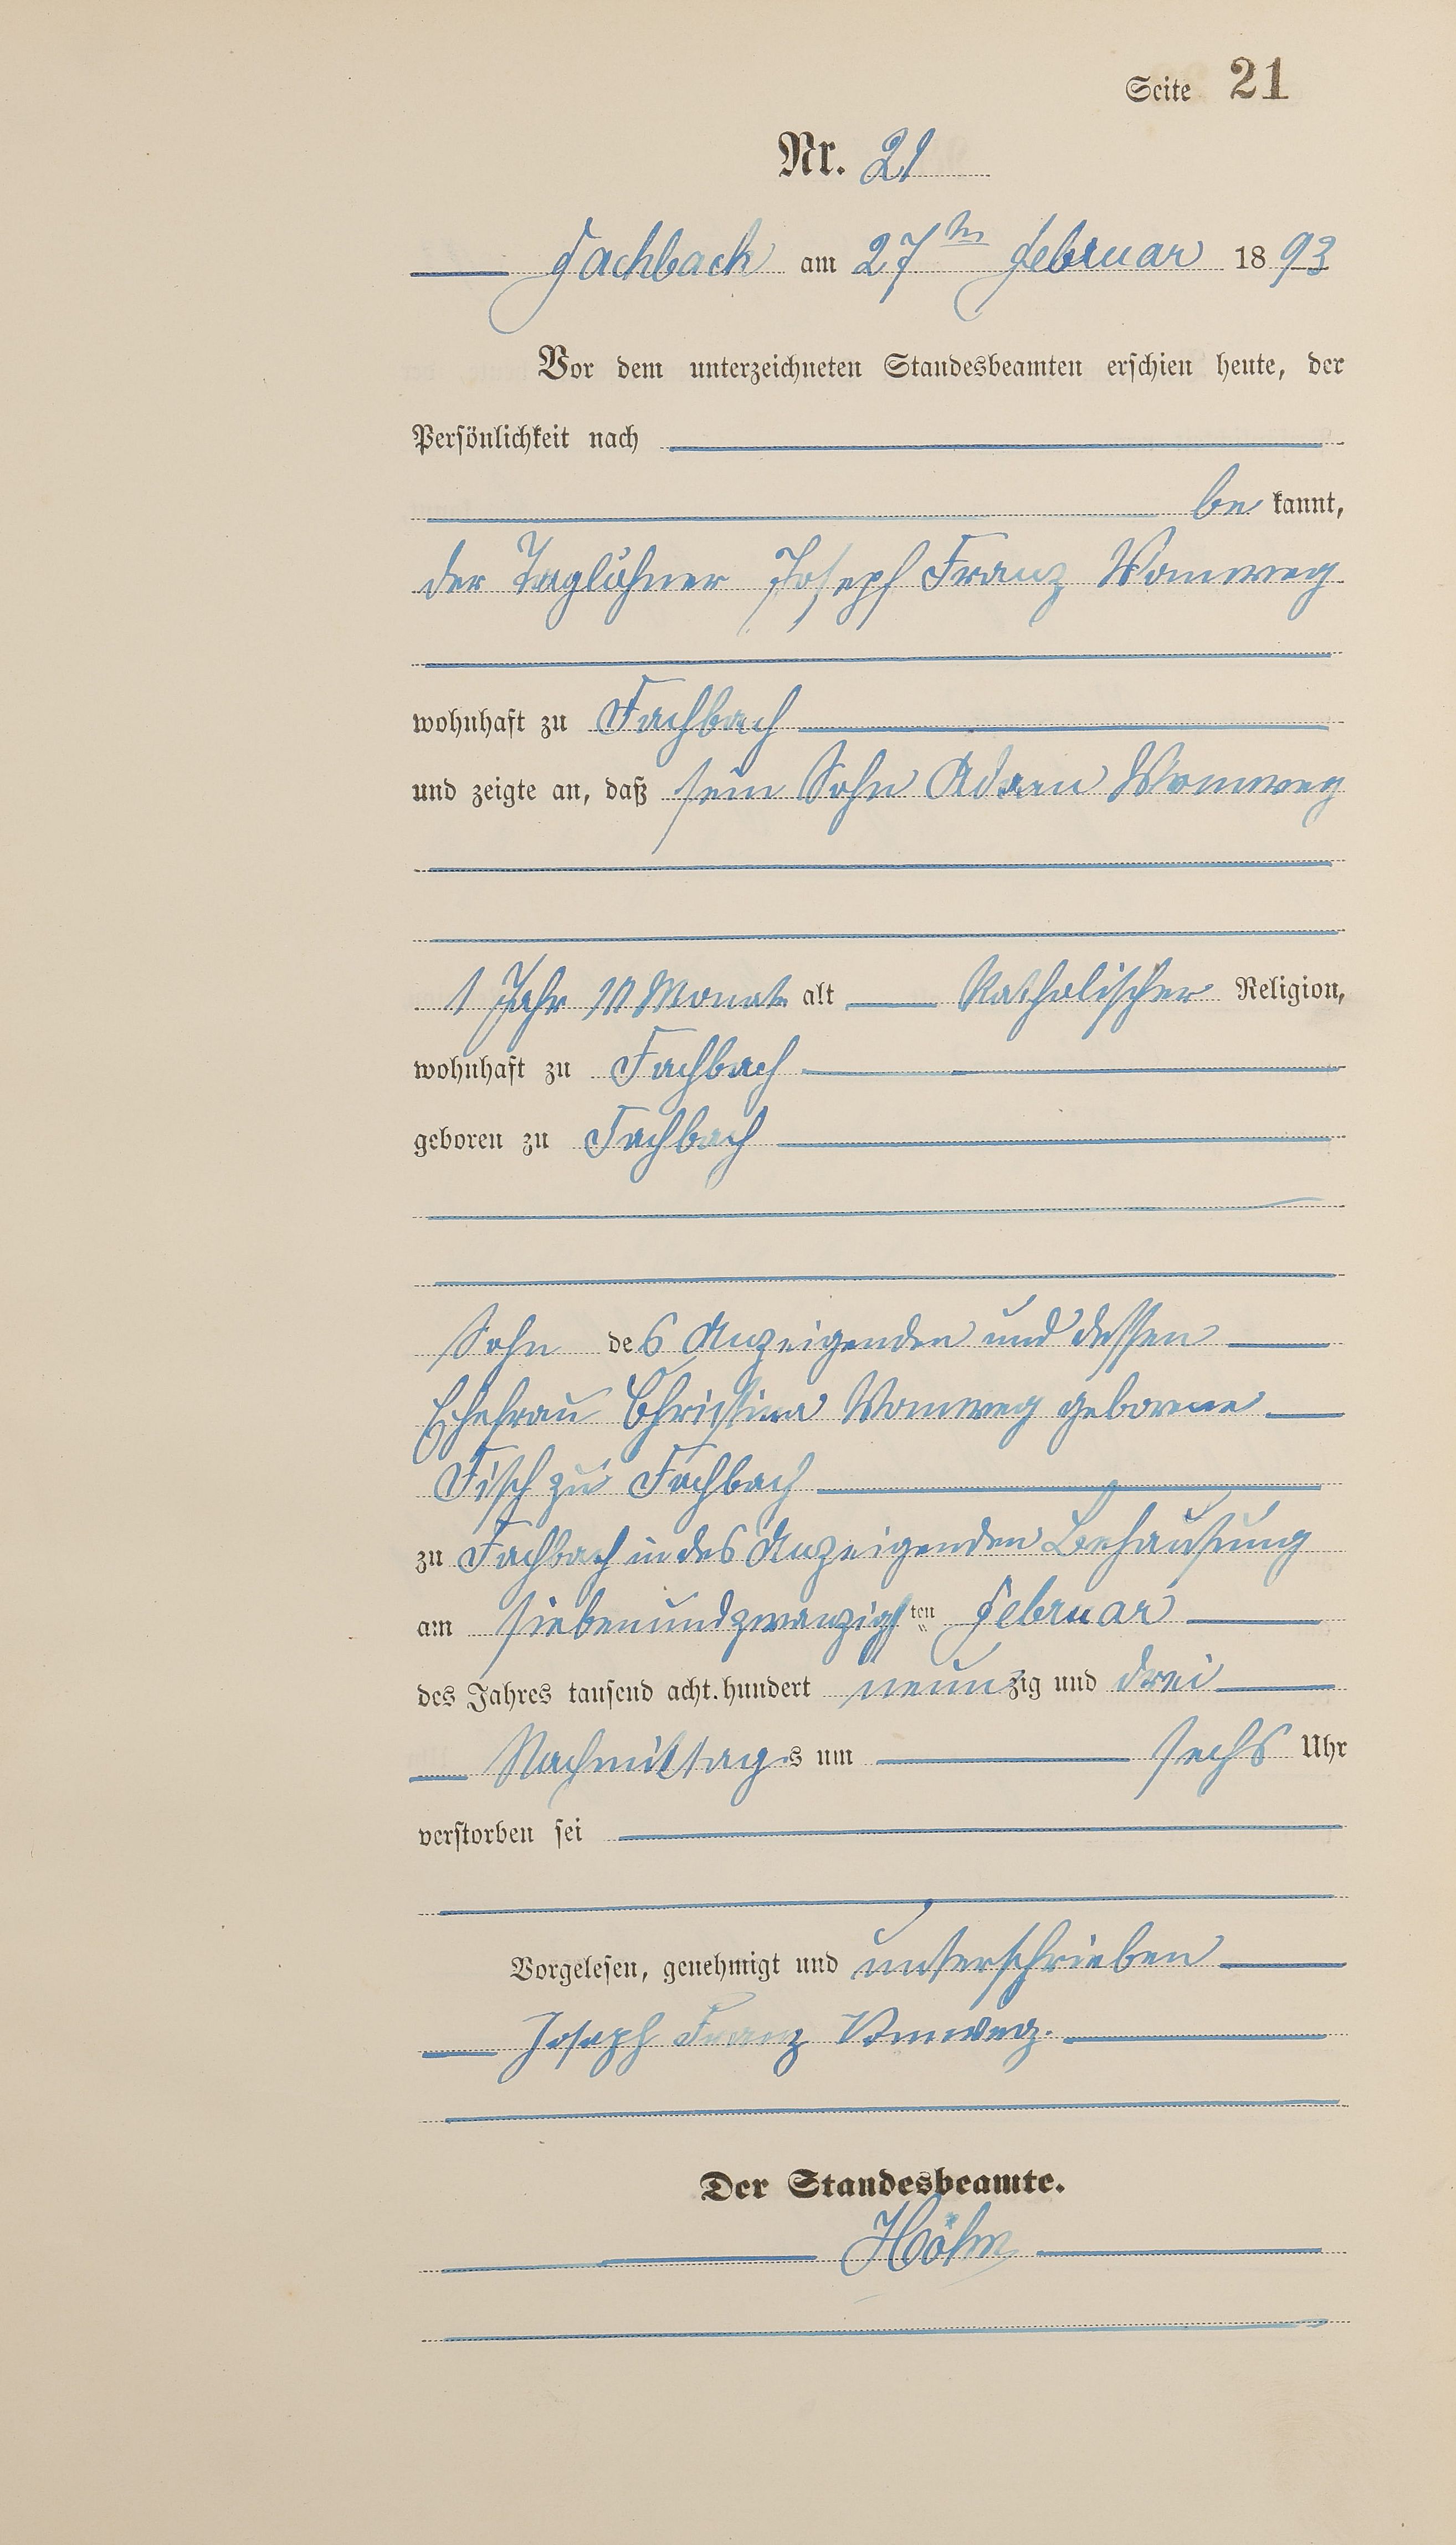 Seite 21
Nr. 21
Fachbach am 27ten Februar 1893
Vor dem unterzeichneten Standesbeamten erschien heute, der
Persönlichkeit nach
be kannt,
der Taglöhner Joseph Franz Vomweg
wohnhaft zu Fachbach
und zeigte an, daß sein Sohn Adam Vomweg
1 Jahr 10 Monate alt Katholischer Religion,
wohnhaft zu Fachbach
geboren zu Fachbach
Sohn des Anzeigenden und dessen
Ehefrau Christina Vomweg geborene
Fisch zu Fachbach
zu Fachbach in des Anzeigenden Behausung
am siebenundzwanzigsten Februar
des Jahres tausend acht hundert neunzig und drei
Nachmittags um sechs Uhr
verstorben sei
Vorgelesen, genehmigt und unterschrieben
Joseph Franz Vomweg.
Der Standesbeamte.